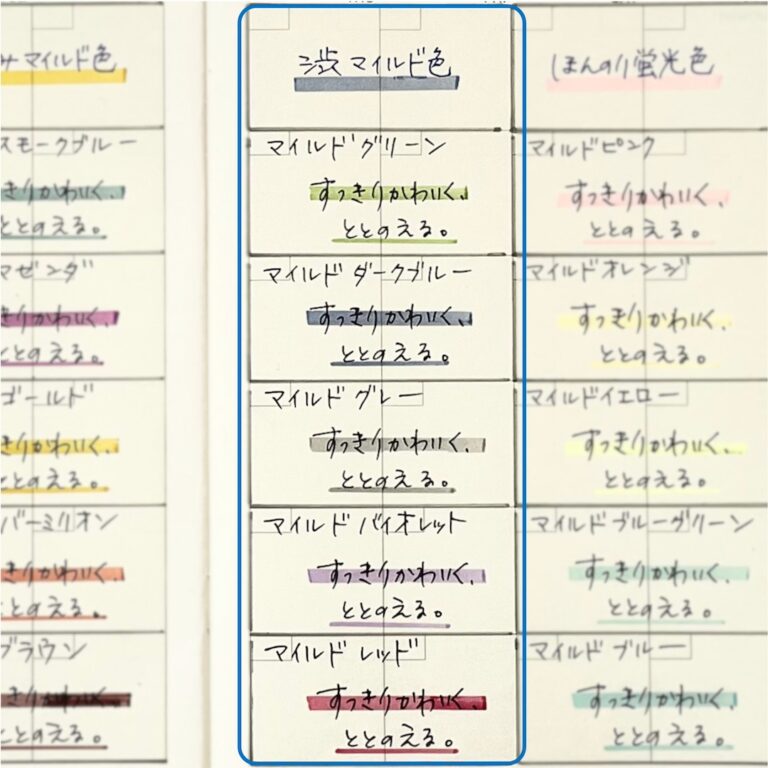 マイルド色
スモークブルー
きりかわいく、
ととのえる。
マゼンダ
きりかわいく、
ととのえる。
ゴールド
きりかわいく、
ととのえる。
バーミリオン
きりかわいく、
ととのえる。
ブラウン
きりかわいく、
ととのえる。
渋マイルド色
マイルドグリーン
すっきりかわいく、
ととのえる。
マイルドダークブルー
すっきりかわいく、
ととのえる。
マイルドグレー
すっきりかわいく、
ととのえる。
マイルドバイオレット
すっきりかわいく、
ととのえる。
マイルドレッド
すっきりかわいく、
ととのえる。
ほんのり蛍光色
マイルドピンク
すっきりかわいく、
ととのえる。
マイルドオレンジ
すっきりかわいく、
ととのえる。
マイルドイエロー
すっきりかわいく、
ととのえる。
マイルドブルーグリーン
すっきりかわいく、
ととのえる。
マイルドブルー
すっきりかわいく、
ととのえる。